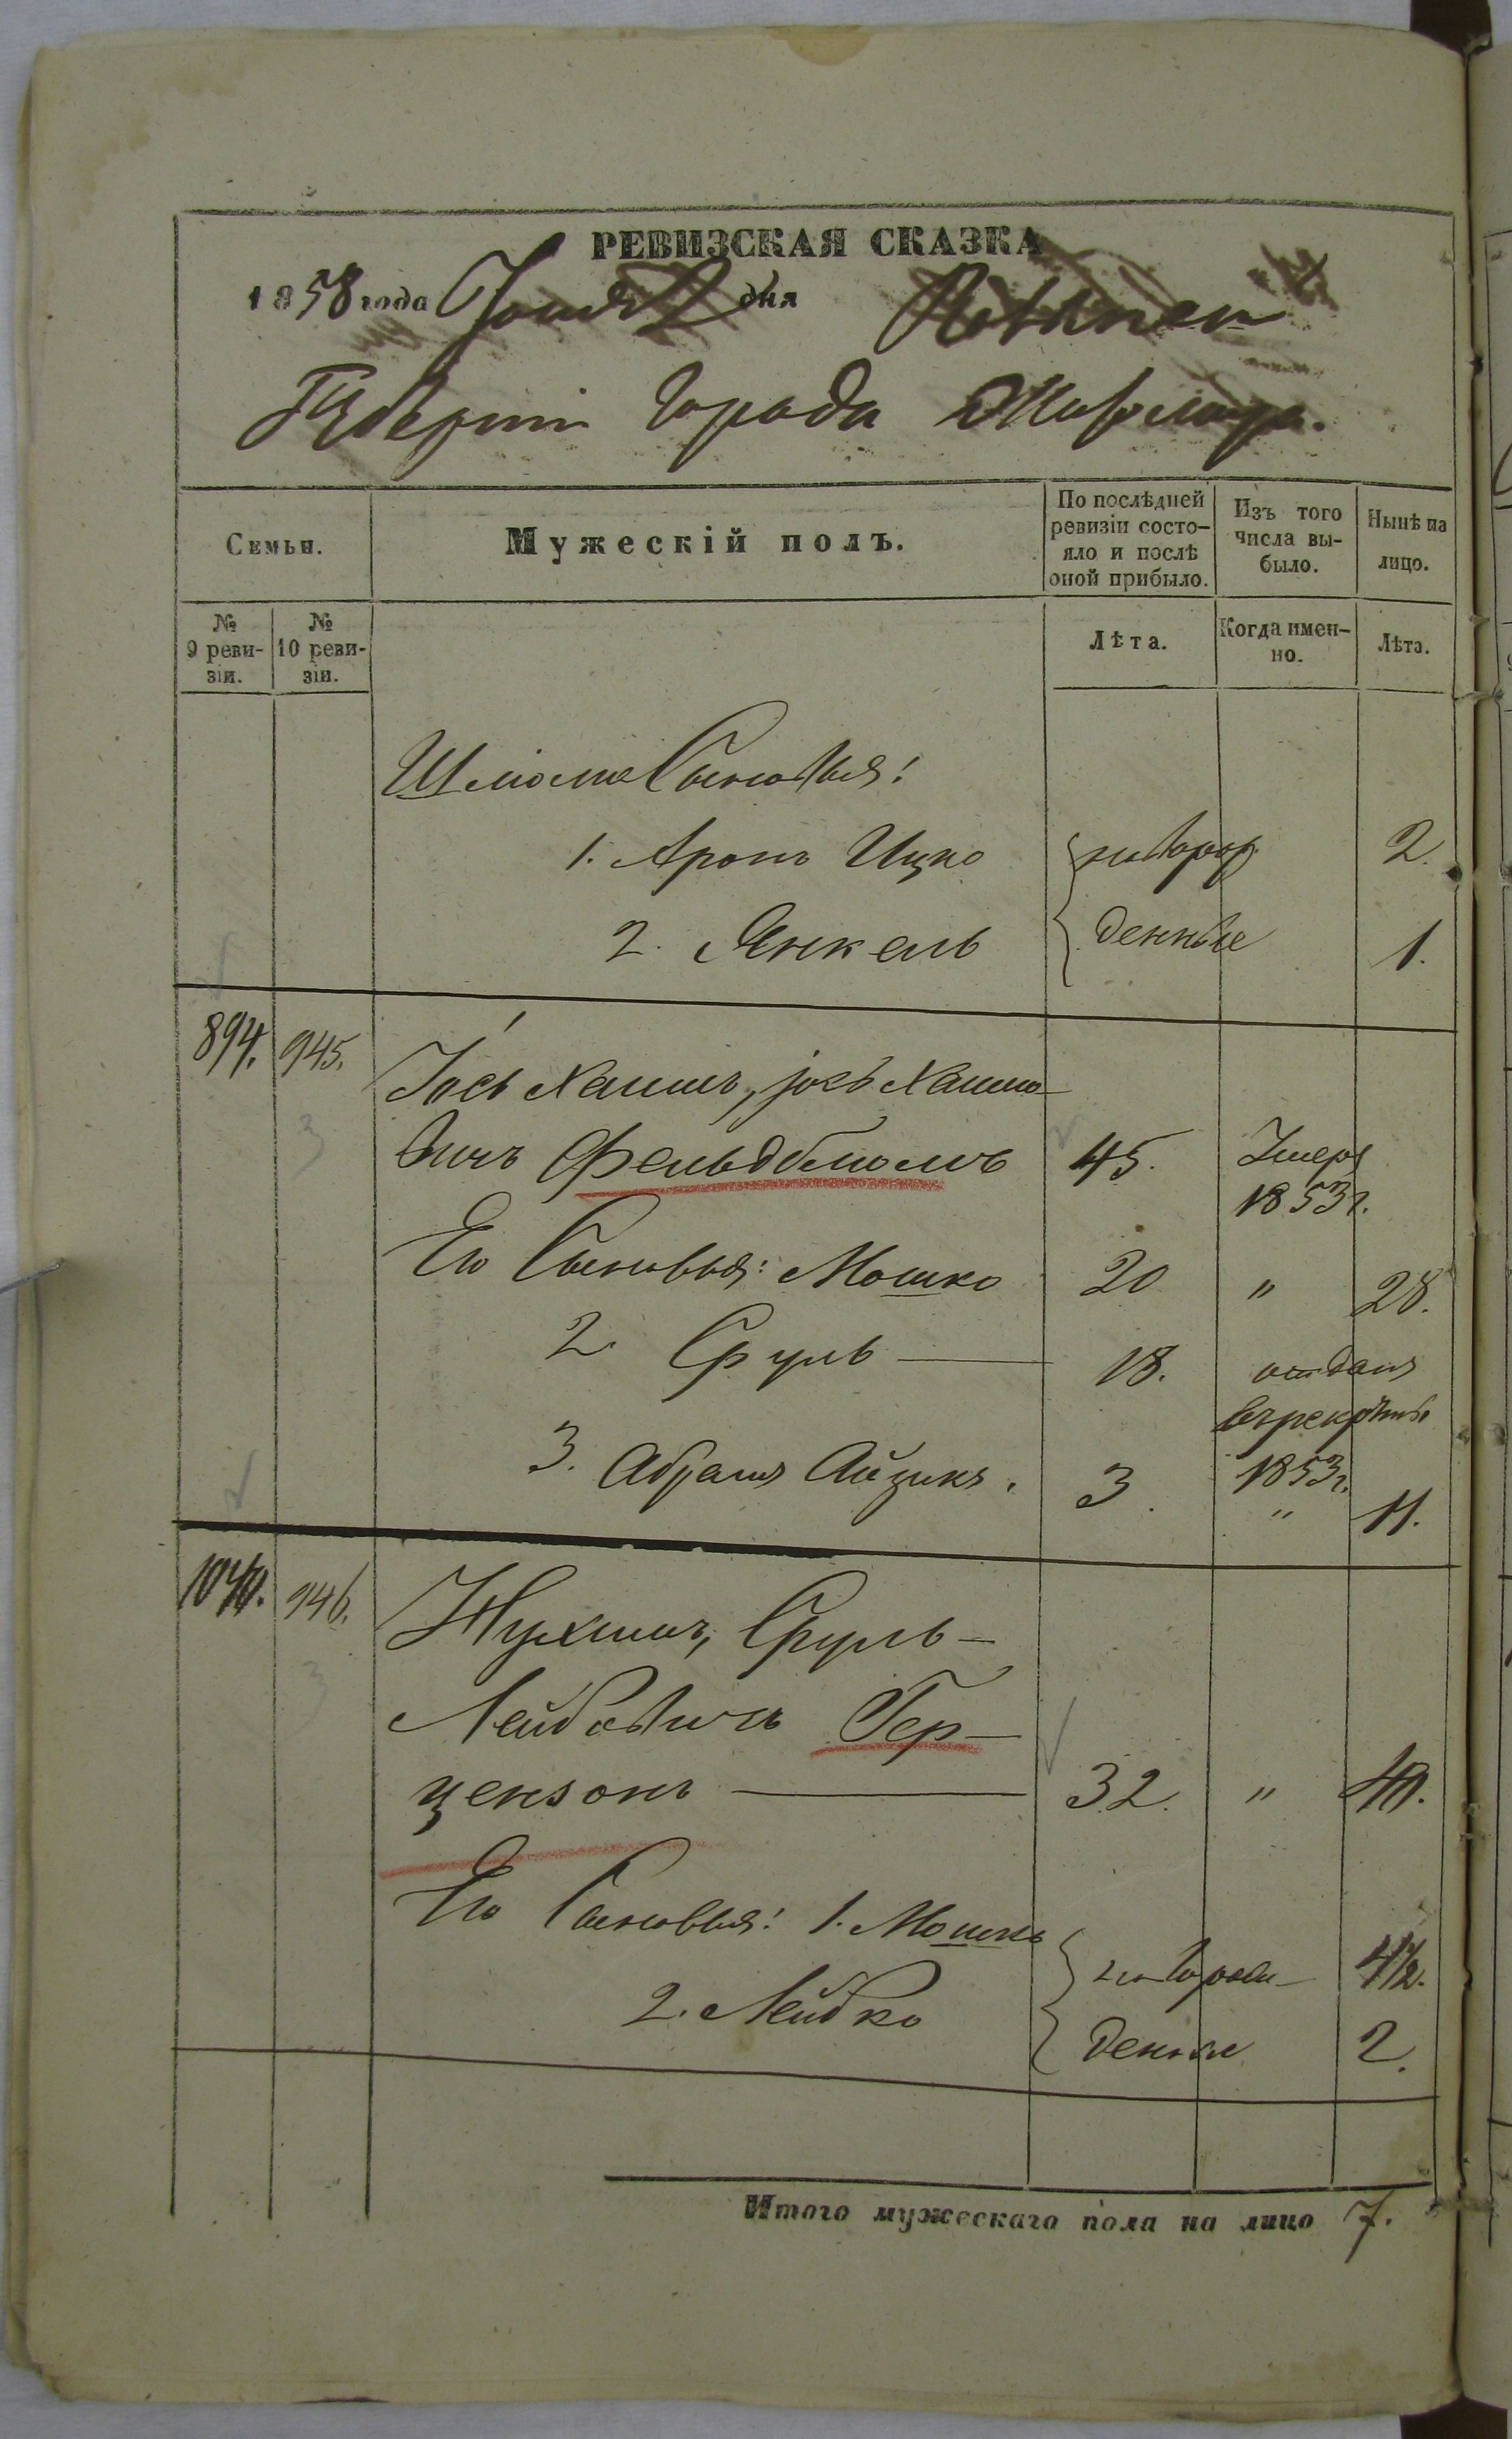 РЕВИЗСКАЯ СКАЗКА
1858 года Іюня 2 дня Волынской
Губерніи города Житомира.
Семьи.
Мужескій полъ.
По послѣдней ревизіи состо-
яло и послѣ
оной прибыло.
Изъ того
числа вы-
было.
Нынѣ на
лицо.
№
9 реви-
зіи.
№
10 реви-
зіи.
Лѣта.
Когда имен-
но.
Лѣта.
Шліома Сыновья:
1. Аронъ Ицко новорож 2.
2. Янкель денные 1.
894. 945. Іось Хаимъ, Іось Хаимо-
вичъ Фельдблюмъ 45. Умеръ
1853 г.
Его Сыновья: Мошко 20 " 28.
2 Сруль — 18. отданъ
въ рекруты
1853 г.
3. Абрамъ Айзикъ. 3. " 11.
1040. 946. Нухимъ, Сруль-
Лейбовичъ Гер-
цензонъ — 32. " 40.
Его Сыновья: 1. Мошко новорож- 4½.
2. Лейбко денные 2.
Итого мужескаго пола на лицо 7.